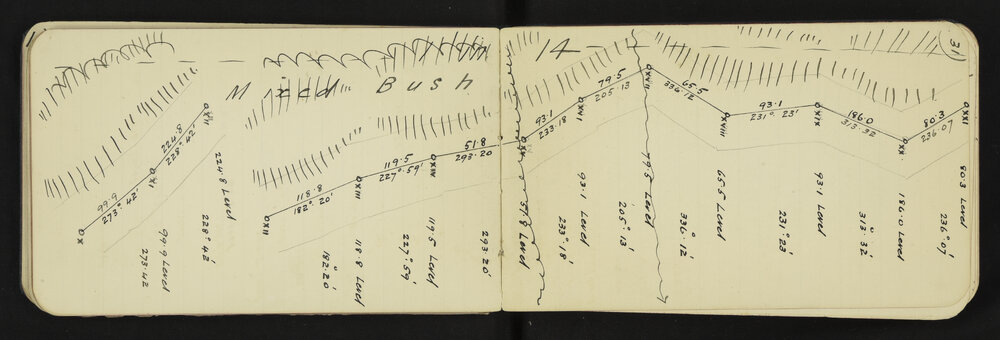 31)
Mixed Bush
14
99.9
273° 42'
224.8
228° 42'
118.8
182° 20'
119.5
227° 59'
51.8
293.20
93.1
233.18
79.5
205.13
65.5
336.12
93.1
231° 23'
186.0
313.32
80.3
236.07
OX
OXI
OXII
OXII
OXIII
OXIV
OXVI
OXVII
OXVIII
OXIX
OXX
OXXI
99.9 Level
273.42
224.8 Level
228° 42'
118.8 Level
182° 20'
119.5 Level
227° 59'
51.8 Level
293.20'
93.1 Level
233° 18'
79.5 Level
205° 13'
65.5 Level
336° 12'
93.1 Level
231° 23'
186.0 Level
313° 32'
80.3 Level
236° 07'